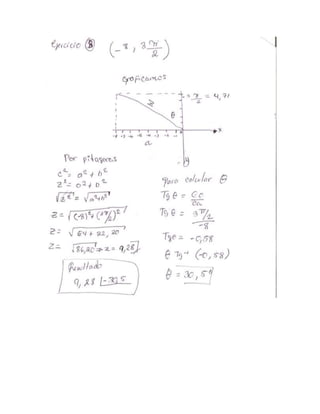 Ejercicio 8 (-8, 3π/2)
graficamos
= π/2 = 4,71
z
θ
x
a
y
Por pitagoras
c² = a² + b²
z² = a² + b²
√z² = √a² + b²
z = √(-8)² + (3π/2)²
z = √64 + 22,20
z = √86,20 ⇒ z = 9,28
Resultado
9,28 ∠-30,5
para calcular θ
Tg θ = CO/CA
Tg θ = 3π/2/-8
Tgθ = -0,58
θ Tg⁻¹ (-0,58)
θ = 30,5